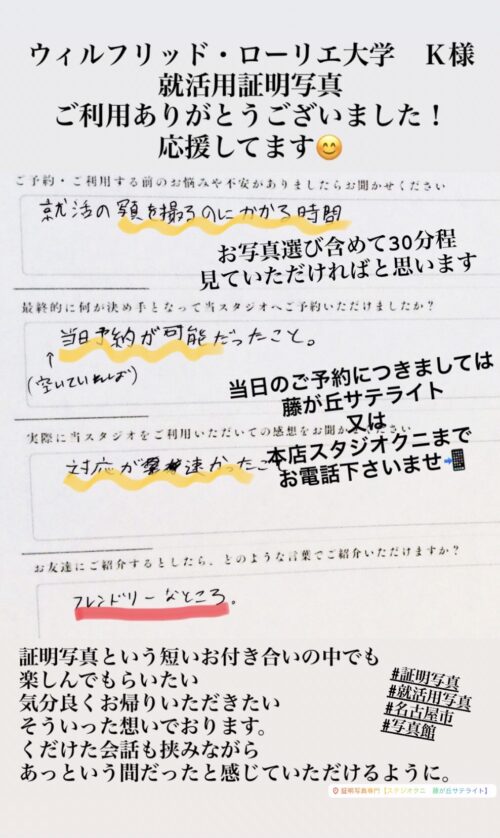 ウィルフリッド・ローリエ大学　K様
就活用証明写真
ご利用ありがとうございました！
応援してます😊
ご予約・ご利用する前のお悩みや不安がありましたらお聞かせください
就活の写真を撮るのにかかる時間
お写真選び含めて30分程
見ていただければと思います
最終的に何が決め手となって当スタジオへご予約いただけましたか？
当日予約が可能だったこと。
↑
(空いていれば)
当日のご予約につきましては
藤が丘サテライト
又は
本店スタジオクニまで
お電話下さいませ📲
実際に当スタジオをご利用いただいての感想をお聞かせください
対応が 速かったこと
お友達にご紹介するとしたら、どのような言葉でご紹介いただけますか？
フレンドリーなところ。
証明写真という短いお付き合いの中でも
楽しんでもらいたい
気分良くお帰りいただきたい
そういった想いでおります。
くだけた会話も挟みながら
あっという間だったと感じていただけるように。
#証明写真
#就活用写真
#名古屋市
#写真館
証明写真専門【スタジオクニ　藤が丘サテライト】